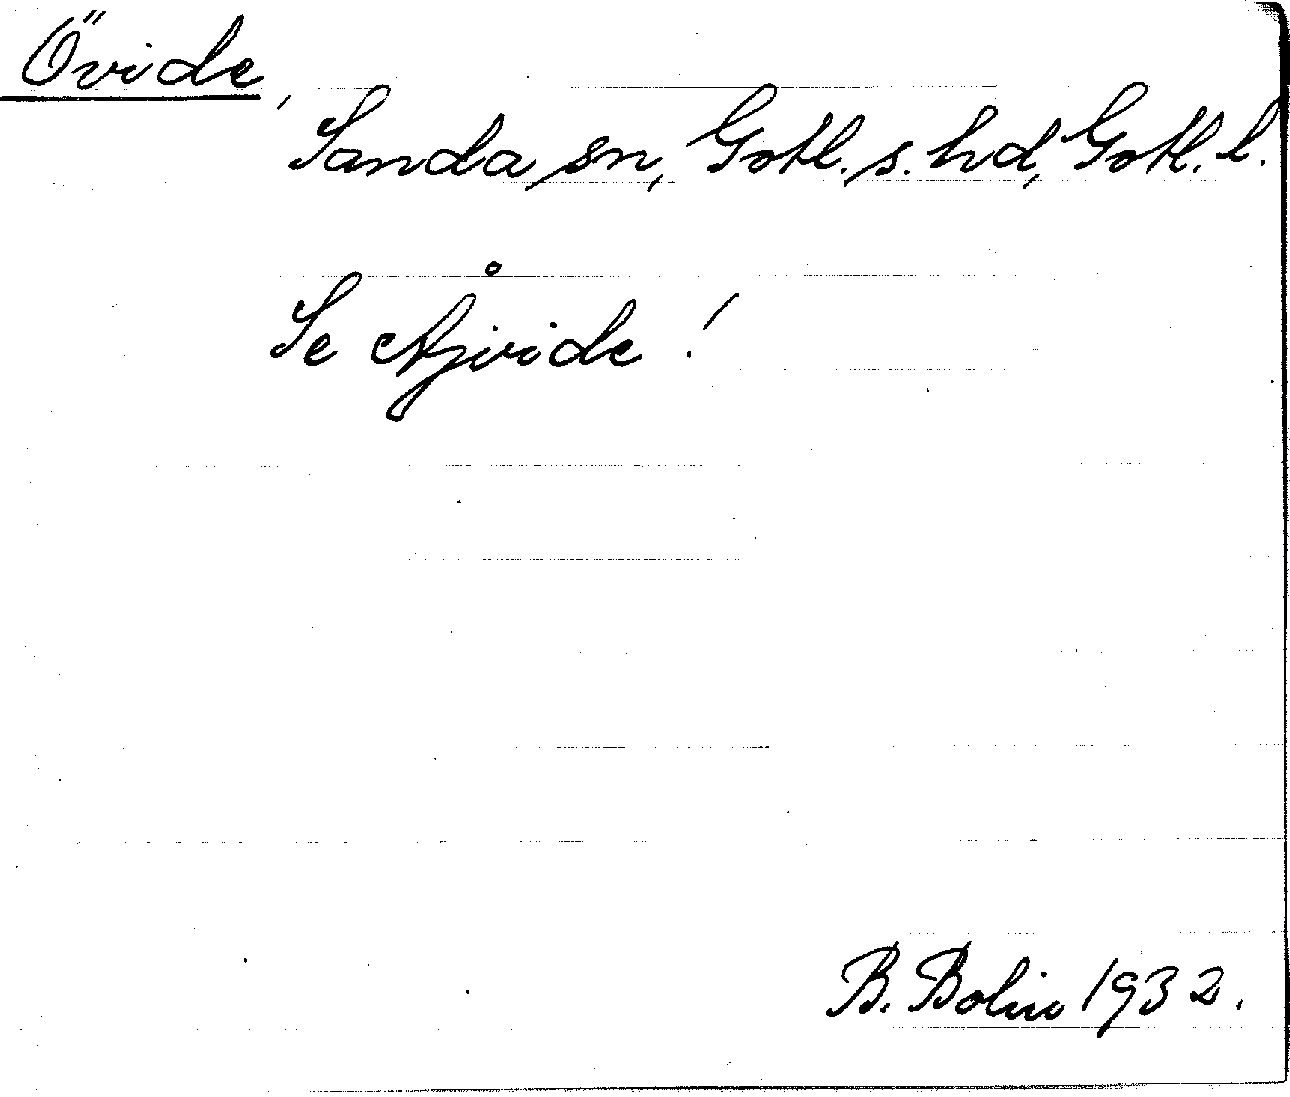 Övide,
Sanda sn, Gotl. s. hd, Gotl. l.
Se Åjvide!
B. Bolin 1932.